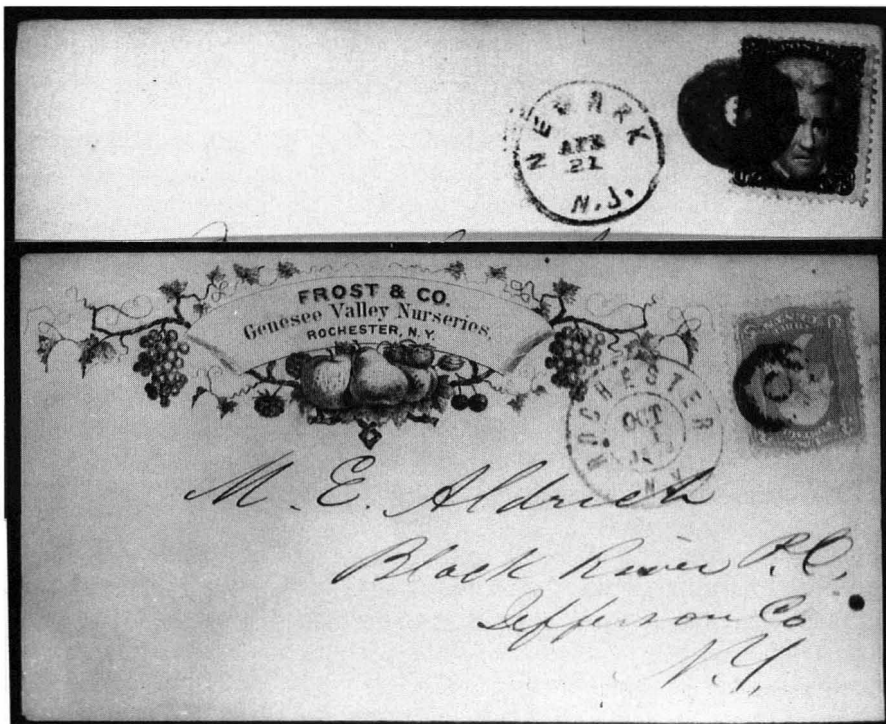 NEWARK
APR
21
N.J.
FROST & CO.
Genesee Valley Nurseries.
ROCHESTER, N.Y.
ROCHESTER
OCT
N.Y.
M. E. Aldrich
Black River P.O.
Jefferson Co
N.Y.